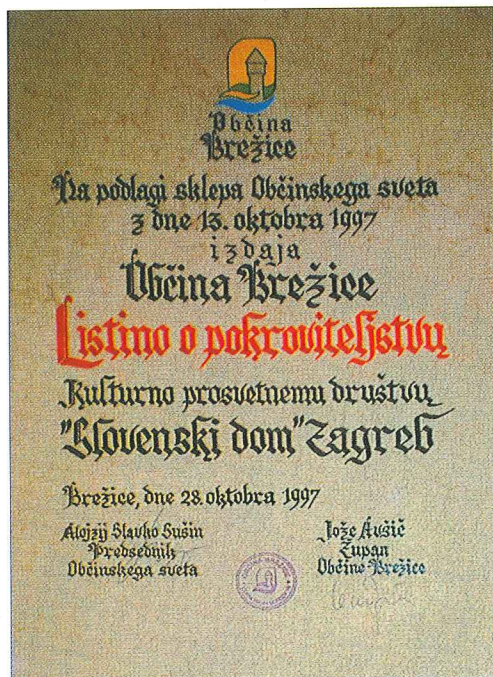 Občina
Brežice
Na podlagi sklepa Občinskega sveta
z dne 13. oktobra 1997
izdaja
Občina Brežice
Listino o pokroviteljstvu
Kulturno prosvetnemu društvu
"Slovenski dom" Zagreb
Brežice, dne 28. oktobra 1997
Alojzij Slavko Sušin
Predsednik
Občinskega sveta
Jože Avšič
Župan
Občine Brežice